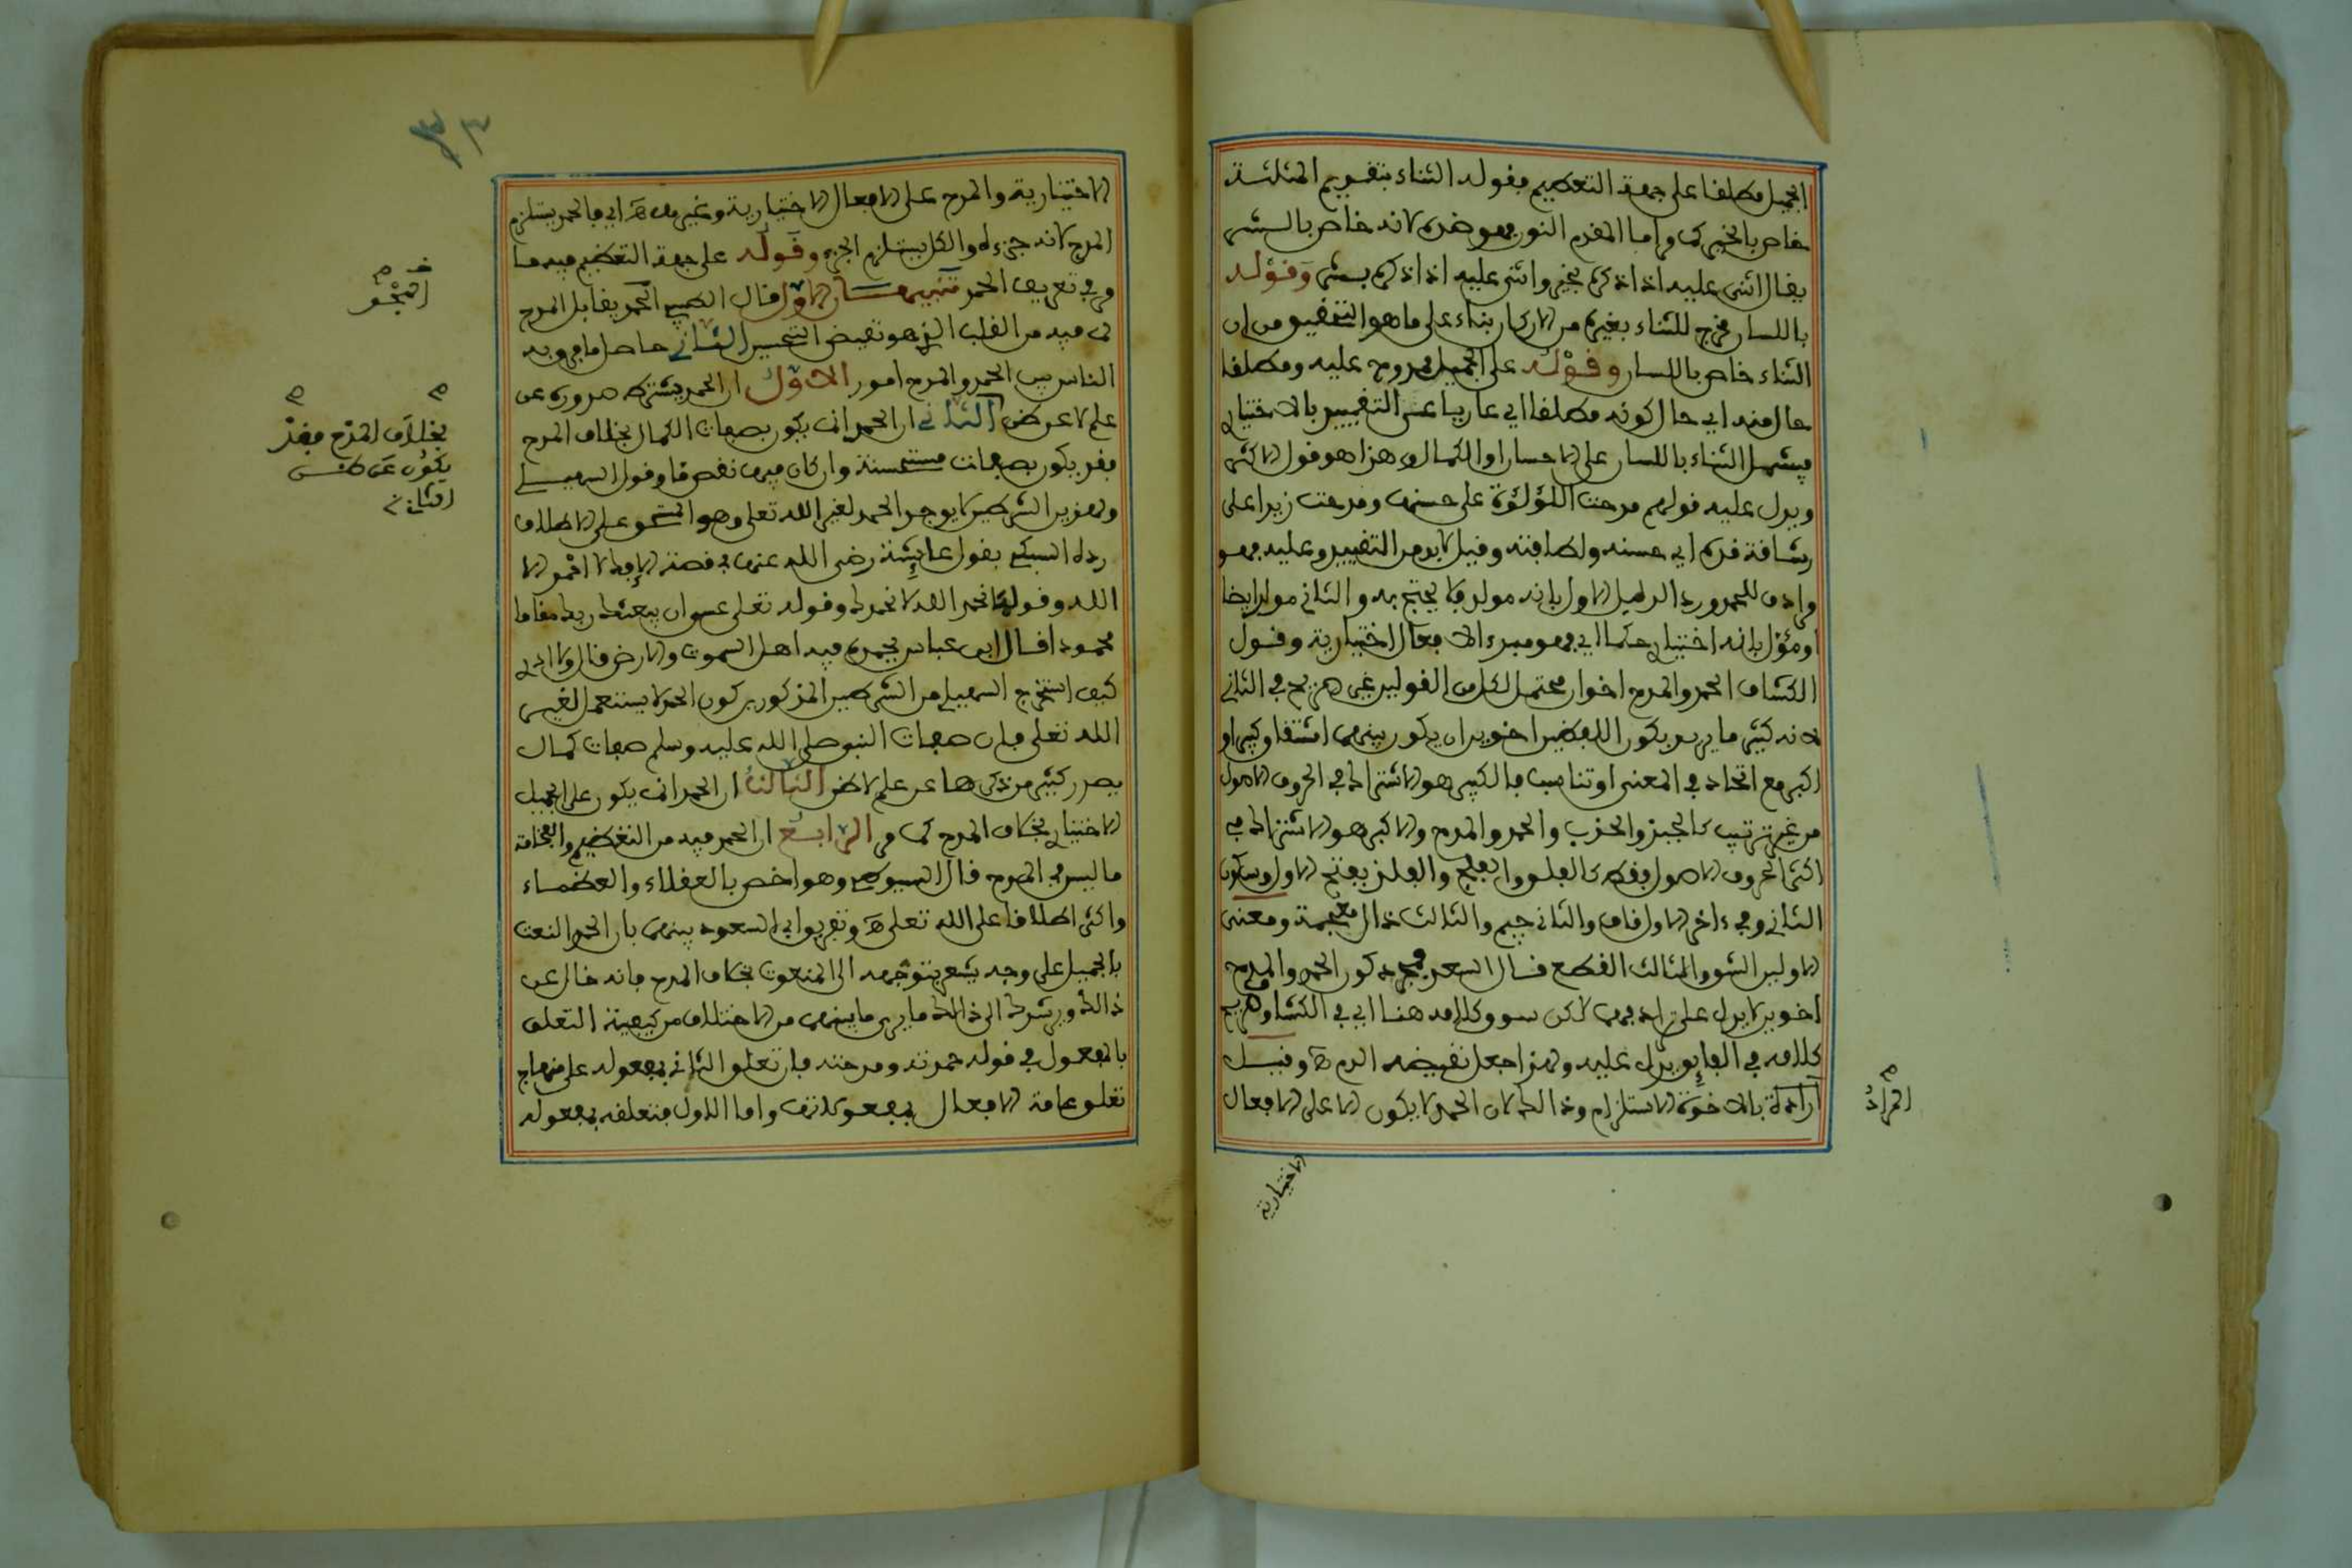 الجميل مطلقا على جهة التعظيم فقوله الثناء بتقديم المثلثة
خاص بالخير كما مر اما المقدم النون فهو ضده لانه خاص بالشر
يقال اثنى عليه اذا ذكره بخير واثنى عليه اذا ذكره بشر وقوله
باللسان مخرج للثناء بغيره من الاركان بناء على ما هو التحقيق من ان
الثناء خاص باللسان وقوله على الجميل ممدوح عليه ومطلقا
حال منه اي حال كونه مطلقا اي عاريا عن التقييد بالاختياري
فيشمل الثناء باللسان على الاحسان او الكمال وهذا هو قول الاكثر
ويدل عليه قولهم مدحت اللؤلؤة على حسنها ومدحت زيدا على
رشاقة قده اي حسنه ولطافته وقيل لا بد من التقييد وعليه فهو
مرادف للحمد ورد الدليل الاول بانه مولد فلا يحتج به والثاني مولد ايضا
او مؤول بانه اختياري حكما اي فهو مبدء الافعال الاختيارية وقول
الكشاف الحمد والمدح اخوان محتمل لكل من القولين غير صريح في الثاني
لانه كثيرا ما يريد بكون اللفظين اخوين ان يكون بينهما اشتقاق كبير او
اكبر مع اتحاد في المعنى او تناسب فالكبير هو الاشتراك في الحروف الاصول
من غير ترتيب كالجبذ والجذب والحمد والمدح والاكبر هو الاشتراك في
اكثر الحروف الاصول فقط كالفلق والفلج والفلذ بفتح الاول وسكون
الثاني وفي ءاخر الاول قاف والثاني جيم والثالث ذال معجمة ومعنى
الاولين الشق والثالث القطع قال السعد فمجرد كون الحمد والمدح
اخوين لا يدل على ترادفهما لكن سوق كلامه هنا اي في الكشاف وصريح
كلامه في الفايق يدل عليه ولهذا جعل نقيضه الذم هـ وقيل
اراد بالاخوة الاستلزام وذالك لان الحمد لا يكون الا على الافعال
المراد
الاختيارية
٣
الاختيارية والمدح على الافعال الاختيارية وغيرها هـ اي فالحمد يستلزم
المدح لانه جزءه والكل يستلزم الجزء وقوله على جهة التعظيم فيه ما
مر في تعريف الحمد تنبيهان الاول قال الطيبي الحمد يقابل المدح
لما فيه من القلب الذي هو نقيض التحسين الثاني حاصل ما فرق به
الناس بين الحمد والمدح امور الاول ان الحمد يشترط صدوره عن
علم لا عن ظن الثاني ان الحمد انما يكون بصفات الكمال بخلاف المدح
فقد يكون بصفات مستحسنة وان كان فيها نقص ما وقول السهيلي
ولهذين الشرطين لا يوجد الحمد لغير الله تعلى وهو المستحق على الاطلاق
رده السبكي بقول عايشة رضي الله عنها في قصة الافك لا احمد الا
الله وقولها نحمد الله لا نحمدك وقوله تعلى عسى ان يبعثك ربك مقاما
محمودا قال ابن عباس يحمده فيه اهل السموت والارض قال ولا ادري
كيف استخرج السهيلي من الشرطين المذكورين كون الحمد لا يستعمل لغير
الله تعلى فان صفات النبي صلى الله عليه وسلم صفات كمال
يصدر كثير من ذكرها عن علم لا ظن الثالث ان الحمد انما يكون على الجميل
الاختياري بخلاف المدح كما مر الرابع ان الحمد فيه من التعظيم والفخامة
ما ليس في المدح قال السيوطي وهو اخص بالعقلاء والعظماء
واكثر اطلاقا على الله تعلى هـ وتفريق ابي السعود بينهما بان الحمد النعت
بالجميل على وجه يشعر بتوجهه الى المنعوت بخلاف المدح فانه خال عن
ذالك ويرشدك الى ذالك ما يرى ما بينهما من الاختلاف من كيفية التعلق
بالمفعول في قوله حمدته ومدحته فان تعلق الثاني بمفعوله على منهاج
تعلق عامة الافعال بمفعولاتها واما الاول فتعلقه بمفعوله
بخلاف المدح فقد
يكون عن ظن
الثاني